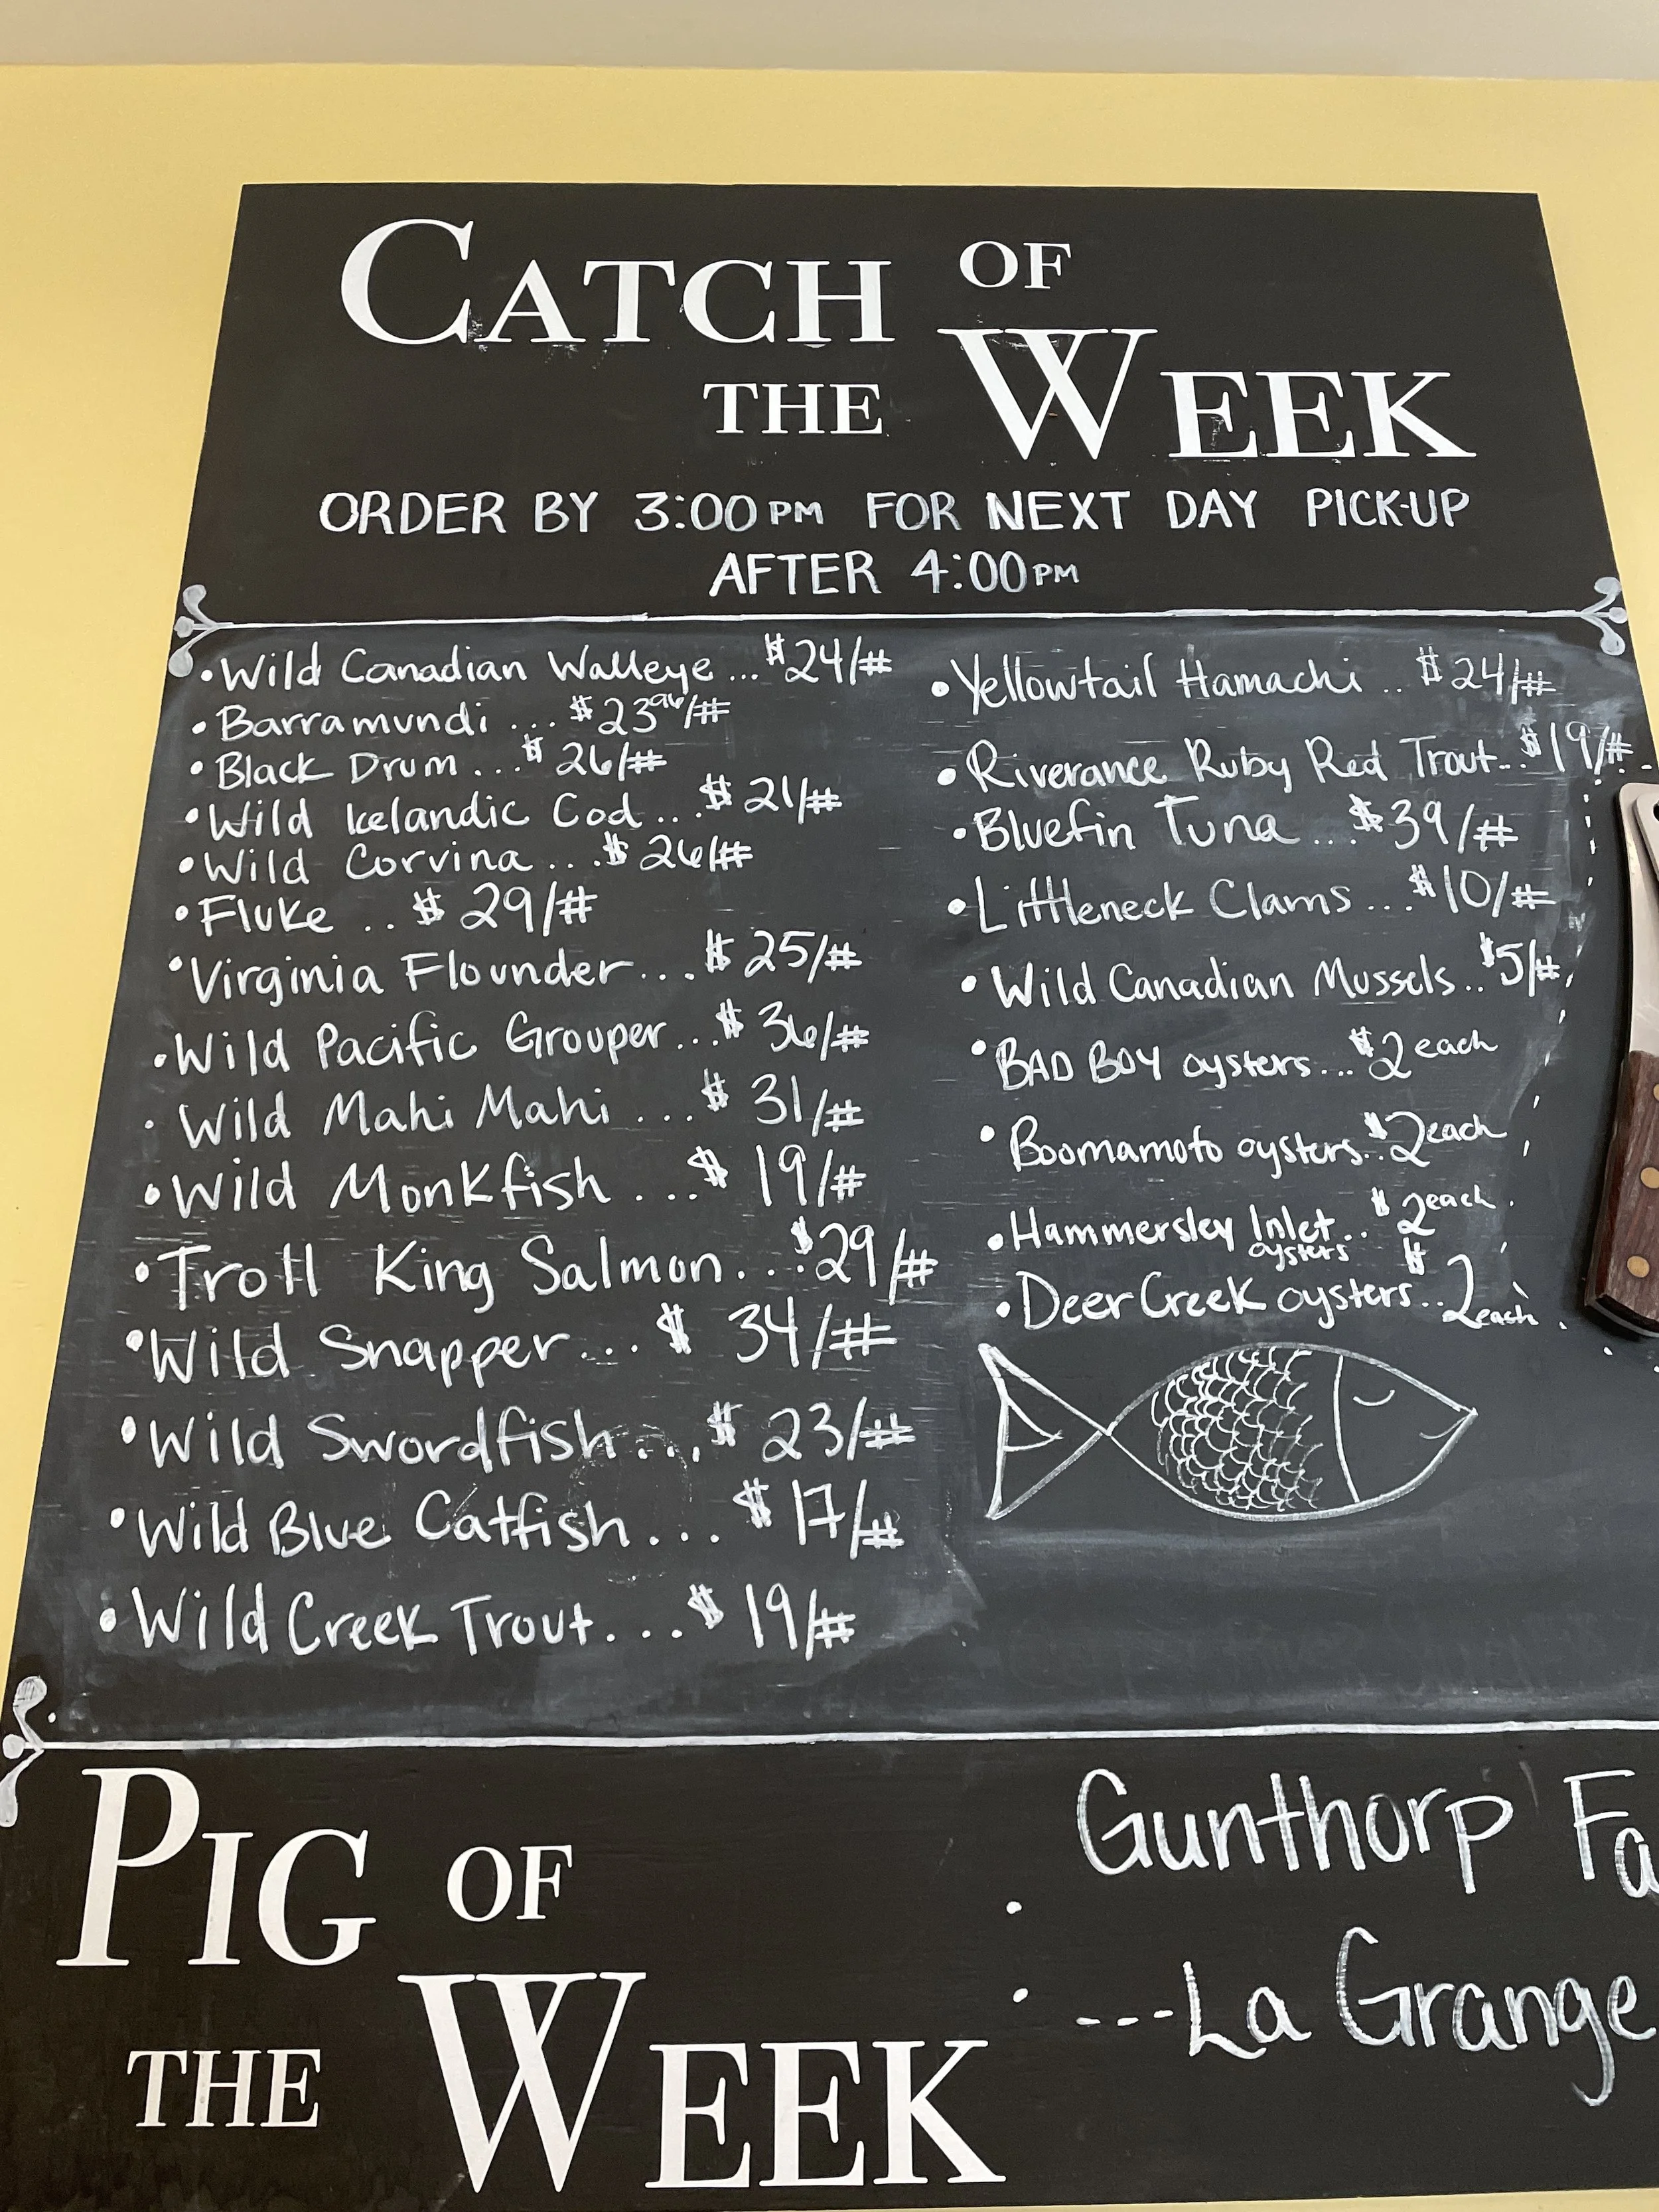 CATCH OF
THE WEEK
ORDER BY 3:00PM FOR NEXT DAY PICK-UP
AFTER 4:00PM
• Wild Canadian Walleye ... $24/#
• Barramundi ... $23⁹⁶/#
• Black Drum ... $26/#
• Wild Icelandic Cod ... $21/#
• Wild Corvina ... $26/#
• Fluke .. $29/#
• Virginia Flounder ... $25/#
• Wild Pacific Grouper ... $36/#
• Wild Mahi Mahi ... $31/#
• Wild Monkfish ... $19/#
• Troll King Salmon ... $29/#
• Wild Snapper ... $34/#
• Wild Swordfish ... $23/#
• Wild Blue Catfish ... $17/#
• Wild Creek Trout ... $19/#
• Yellowtail Hamachi .. $24/#
• Riverance Ruby Red Trout ... $19/#
• Bluefin Tuna ... $39/#
• Littleneck Clams ... $10/#
• Wild Canadian Mussels .. $5/#
• BAD BOY oysters ... $2 each
• Boomamoto oysters .. $2 each
• Hammersley Inlet .. $2 each
oysters
• Deer Creek oysters .. $2 each
PIG OF
THE WEEK
Gunthorp Fa
---La Grange